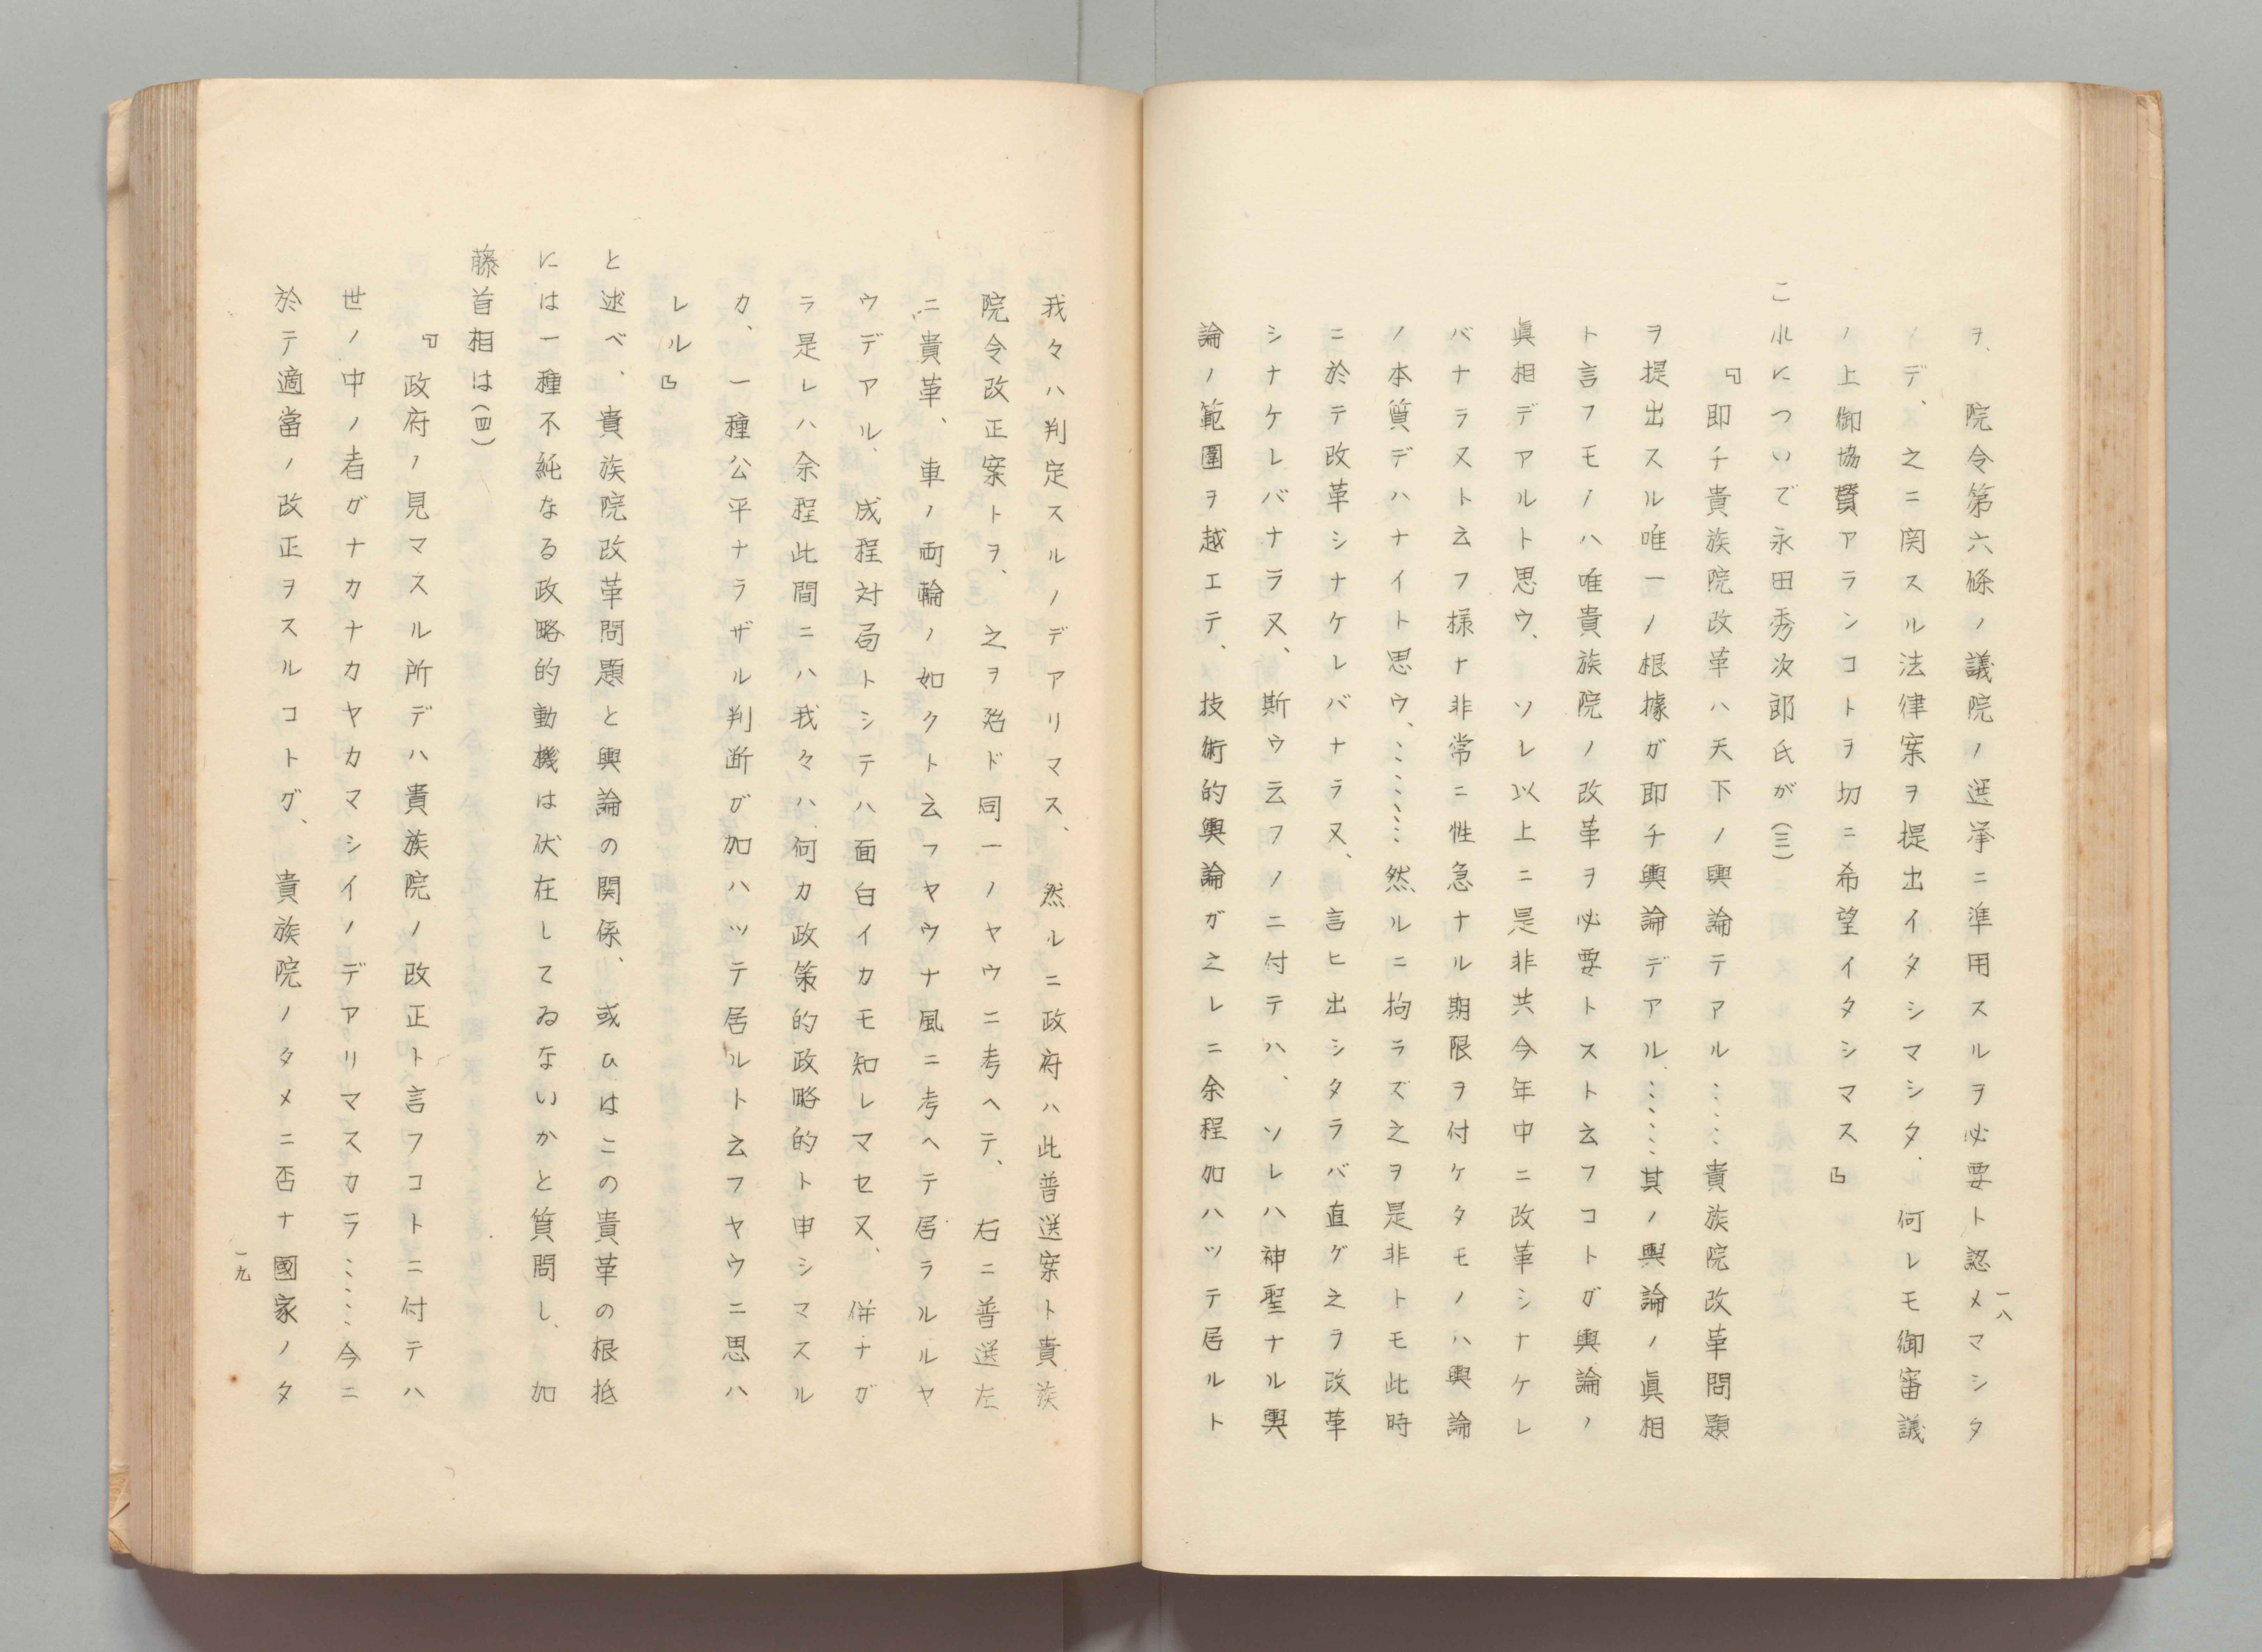 ヲ、院令第六條ノ議院ノ選挙ニ準用スルヲ必要ト認メマシタ
ノデ、之ニ関スル法律案ヲ提出イタシマシタ、何レモ御審議
ノ上御協賛アランコトヲ切ニ希望イタシマス』
これについで永田秀次郎氏が(三)
『即チ貴族院改革ハ天下ノ輿論テアル……貴族院改革問題
ヲ提出スル唯一ノ根據ガ即チ輿論デアル……其ノ輿論ノ眞相
ト言フモノハ唯貴族院ノ改革ヲ必要トスト云フコトガ輿論ノ
眞相デアルト思ウ、ソレ以上ニ是非共今年中ニ改革シナケレ
バナラヌト云フ様ナ非常ニ性急ナル期限ヲ付ケタモノハ輿論
ノ本質デハナイト思ウ、………然ルニ拘ラズ之ヲ是非トモ此時
ニ於テ改革シナケレバナラヌ、言ヒ出シタラバ直グ之ヲ改革
シナケレバナラヌ、斯ウ云フノニ付テハ、ソレハ神聖ナル輿
論ノ範圍ヲ越エテ、技術的輿論ガ之レニ余程加ハツテ居ルト
一八
我々ハ判定スルノデアリマス、然ルニ政府ハ此普選案ト貴族
院令改正案トヲ、之ヲ殆ド同一ノヤウニ考ヘテ、右ニ普選左
ニ貴革、車ノ両輪ノ如クト云フヤウナ風ニ考ヘテ居ラルルヤ
ウデアル、成程対局トシテハ面白イカモ知レマセヌ、併ナガ
ラ是レハ余程此間ニハ我々ハ何カ政策的政略的ト申シマスル
カ、一種公平ナラザル判断ガ加ハツテ居ルト云フヤウニ思ハ
レル』
と述べ、貴族院改革問題と輿論の関係、或ひはこの貴革の根抵
には一種不純なる政略的動機は伏在してゐないかと質問し、加
藤首相は(四)
『政府ノ見マスル所デハ貴族院ノ改正ト言フコトニ付テハ
世ノ中ノ者ガナカナカヤカマシイノデアリマスカラ……今ニ
於テ適當ノ改正ヲスルコトガ、貴族院ノタメニ否ナ國家ノタ
一九